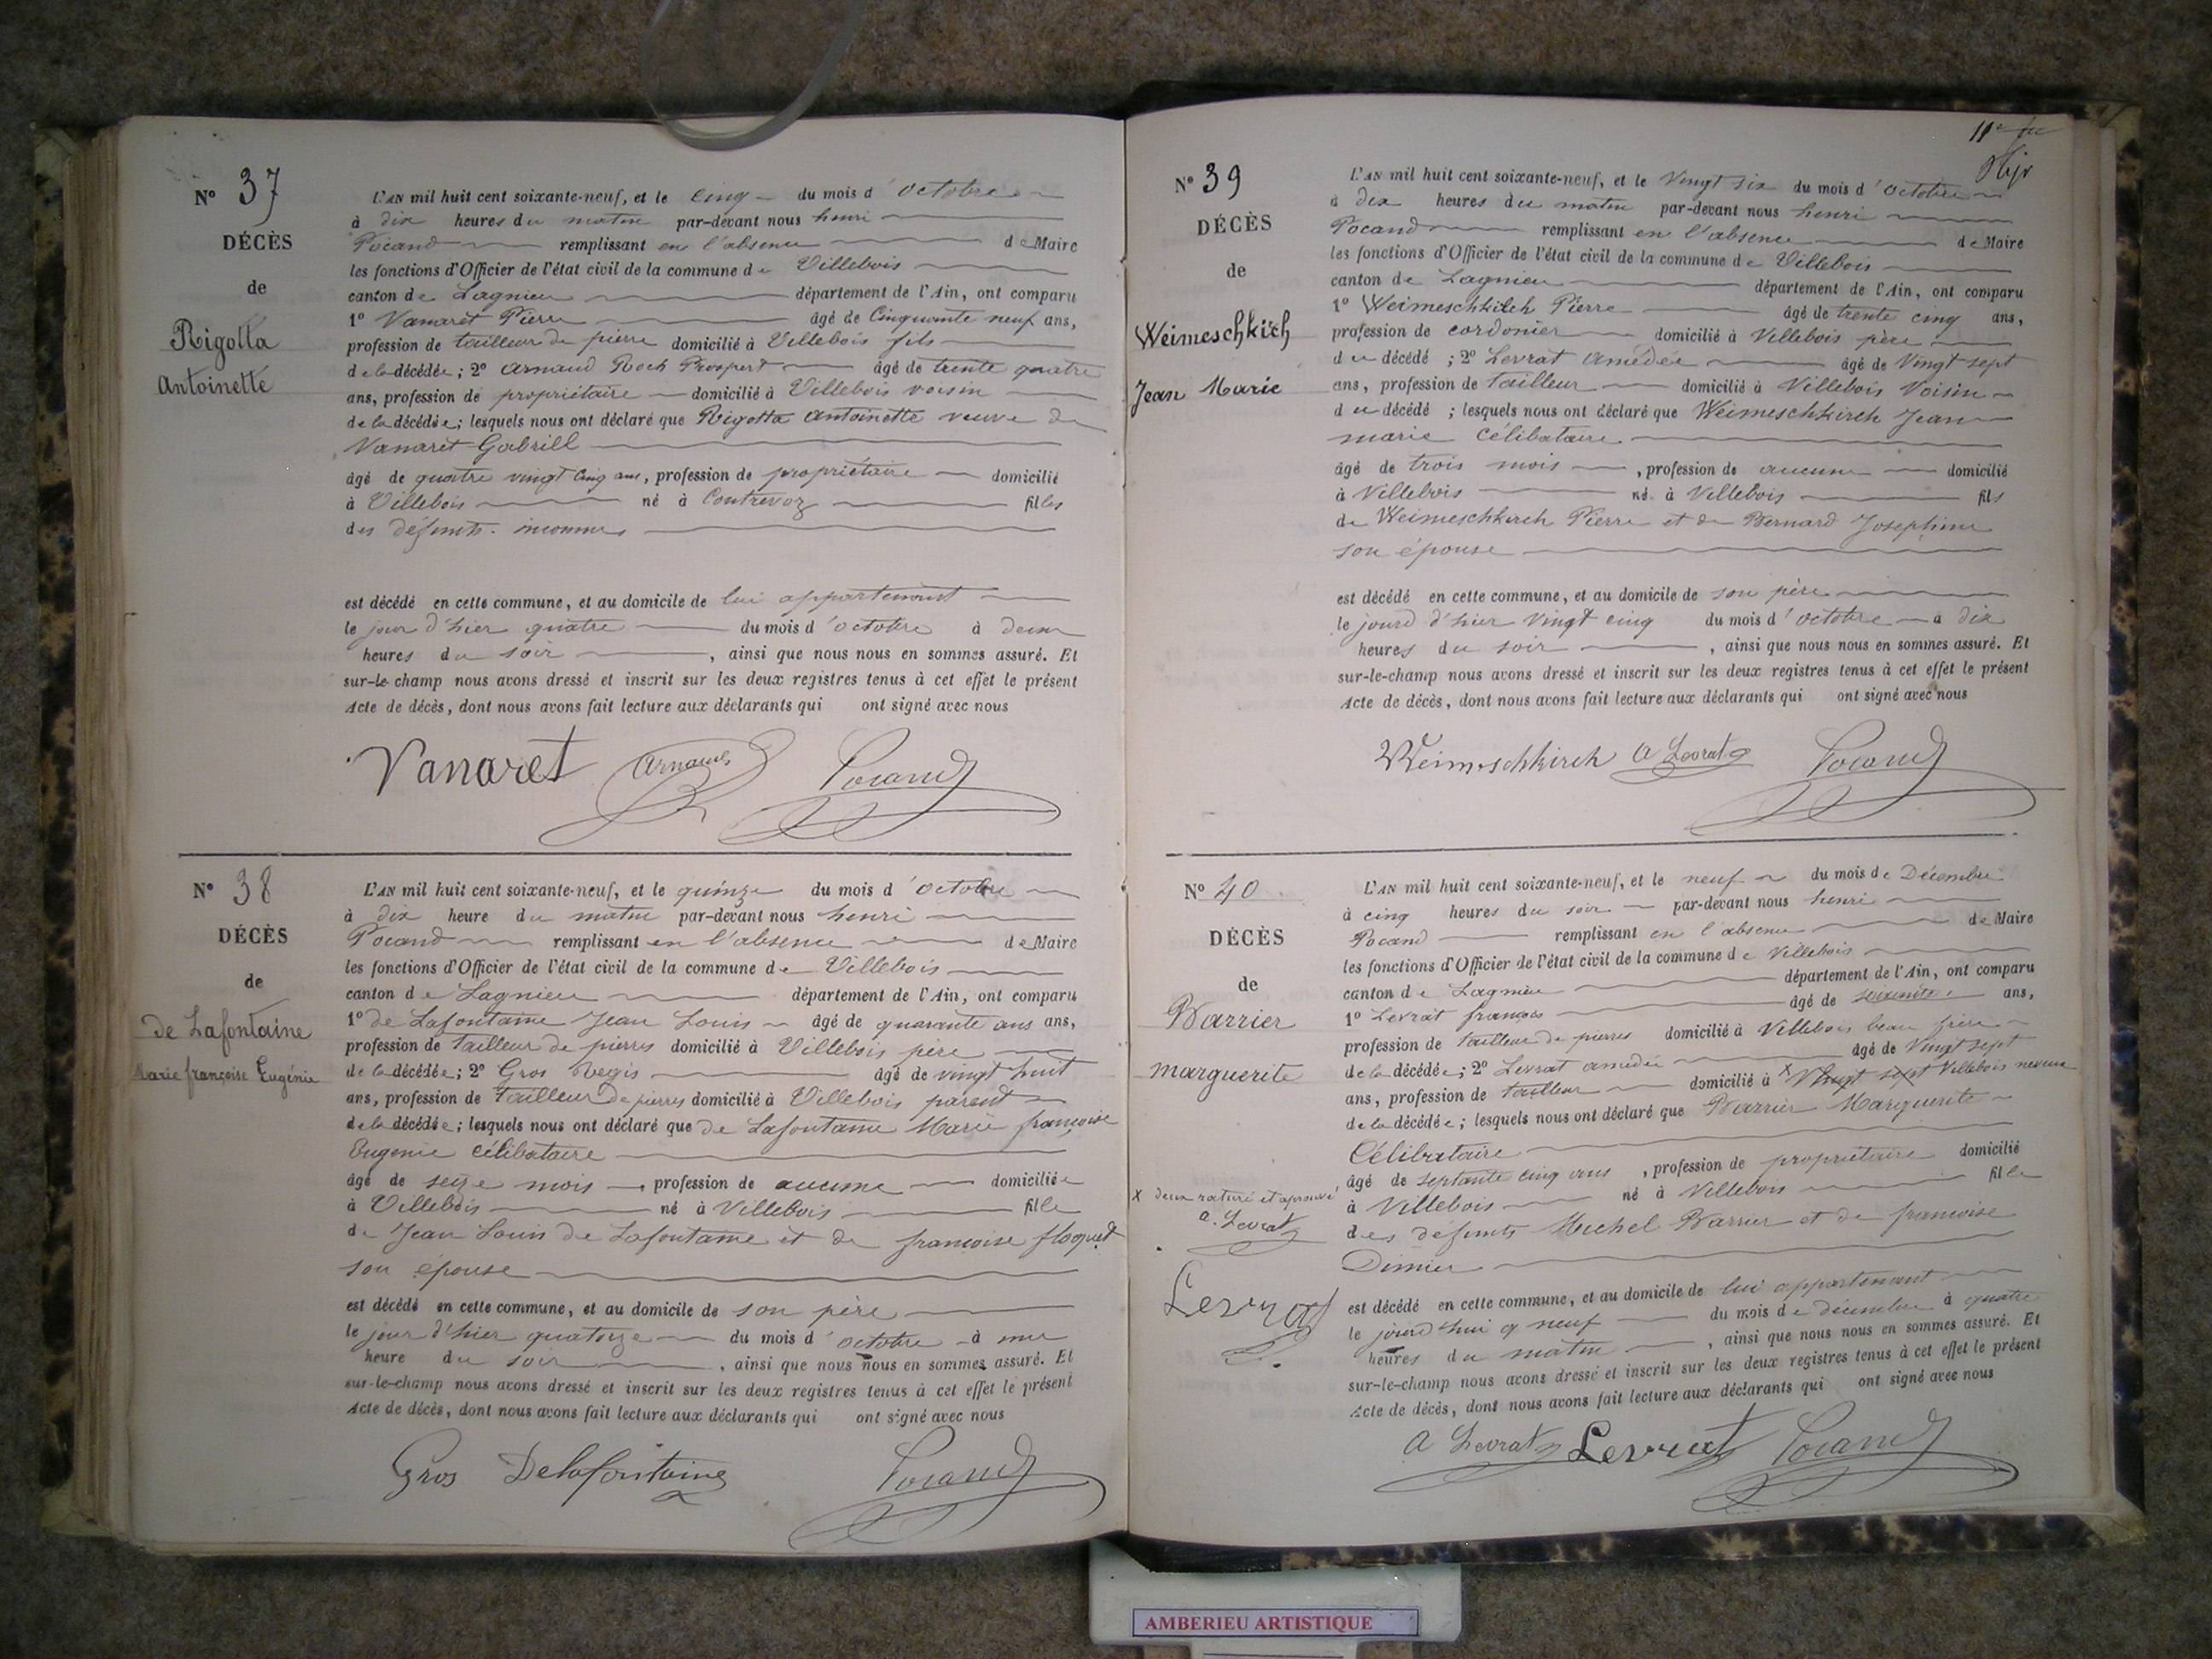 N° 37
DÉCÈS
de
Rigotta
Antoinette
L'AN mil huit cent soixante-neuf, et le cinq du mois d'octobre
à dix heures du matin par-devant nous henri
Pocand remplissant en l'absence de Maire
les fonctions d'Officier de l'état civil de la commune de Villebois
canton de Lagnieu département de l'Ain, ont comparu
1° Vanaret Pierre âgé de Cinquante neuf ans,
profession de tailleur de pierre domicilié à Villebois fils
de la décédée; 2° Arnaud Roch Prospert âgé de trente quatre
ans, profession de propriétaire domicilié à Villebois voisin
de la décédée; lesquels nous ont déclaré que Rigotta Antoinette veuve de
Vanaret Gabrill
âgé de quatre vingt cinq ans, profession de propriétaire domicilié
à Villebois né à Contrevoz filles
des défunts inconnus
est décédé en cette commune, et au domicile de lui appartenant
le jour d'hier quatre du mois d'octobre à deux
heures du soir, ainsi que nous nous en sommes assuré. Et
sur-le-champ nous avons dressé et inscrit sur les deux registres tenus à cet effet le présent
Acte de décès, dont nous avons fait lecture aux déclarants qui ont signé avec nous
Vanaret Arnaud Pocand
N° 38
DÉCÈS
de
de Lafontaine
Marie françoise Eugénie
L'AN mil huit cent soixante-neuf, et le quinze du mois d'octobre
à dix heure du matin par-devant nous henri
Pocand remplissant en l'absence de Maire
les fonctions d'Officier de l'état civil de la commune de Villebois
canton de Lagnieu département de l'Ain, ont comparu
1° de Lafontaine Jean Louis âgé de quarante ans ans,
profession de tailleur de pierres domicilié à Villebois père
de la décédée; 2° Gros Regis âgé de vingt huit
ans, profession de tailleur de pierres domicilié à Villebois parent
de la décédée; lesquels nous ont déclaré que de Lafontaine Marie françoise
Eugenie célibataire
âgé de seize mois, profession de aucune domiciliée
à Villebois né à Villebois fille
de Jean Louis de Lafontaine et de francoise floquet
son épouse
est décédé en cette commune, et au domicile de son père
le jour d'hier quatorze du mois d'octobre à une
heure du soir, ainsi que nous nous en sommes assuré. Et
sur-le-champ nous avons dressé et inscrit sur les deux registres tenus à cet effet le présent
Acte de décès, dont nous avons fait lecture aux déclarants qui ont signé avec nous
Gros Delafontaine Pocand
N° 39
DÉCÈS
de
Weimeschkich
Jean Marie
L'AN mil huit cent soixante-neuf, et le Vingt six du mois d'octobre
à dix heures du matin par-devant nous henri
Pocand remplissant en l'absence de Maire
les fonctions d'Officier de l'état civil de la commune de Villebois
canton de Lagnieu département de l'Ain, ont comparu
1° Weimeschkitch Pierre âgé de trente cinq ans,
profession de cordonier domicilié à Villebois père
du décédé; 2° Levrat Amédée âgé de Vingt sept
ans, profession de tailleur domicilié à Villebois Voisin
du décédé; lesquels nous ont déclaré que Weimeschkirch Jean
marie célibataire
âgé de trois mois, profession de aucune domicilié
à Villebois né à Villebois fils
de Weimeschkirch Pierre et de Bernard Josephine
son épouse
est décédé en cette commune, et au domicile de son père
le jourd d'hier vingt cinq du mois d'octobre à dix
heures du soir, ainsi que nous nous en sommes assuré. Et
sur-le-champ nous avons dressé et inscrit sur les deux registres tenus à cet effet le présent
Acte de décès, dont nous avons fait lecture aux déclarants qui ont signé avec nous
Weimeschkirch A Levrat Pocand
N° 40
DÉCÈS
de
Barrier
marguerite
X deux raturé et aprouvé
a. Levrat
Levrat
L'AN mil huit cent soixante-neuf, et le neuf du mois de Décembre
à cinq heures du soir par-devant nous henri
Pocand remplissant en l'absence de Maire
les fonctions d'Officier de l'état civil de la commune de Villebois
canton de Lagnieu département de l'Ain, ont comparu
1° Levrat françois âgé de soixante ans,
profession de tailleur de pierres domicilié à Villebois beau frère
de la décédée; 2° Levrat amédée âgé de Vingt sept
ans, profession de tailleur domicilié à X Vingt sept Villebois neveux
de la décédée; lesquels nous ont déclaré que Barrier Marguerite
Célibataire
âgé de septante cinq ans, profession de propriétaire domicilié
à Villebois né à Villebois fille
des défunts Michel Barrier et de francoise
Dimier
est décédé en cette commune, et au domicile de lui appartenant
le jourd'hui 9 neuf du mois de décembre à quatre
heures du matin, ainsi que nous nous en sommes assuré. Et
sur-le-champ nous avons dressé et inscrit sur les deux registres tenus à cet effet le présent
Acte de décès, dont nous avons fait lecture aux déclarants qui ont signé avec nous
A Levrat Levrat Pocand
AMBERIEU ARTISTIQUE